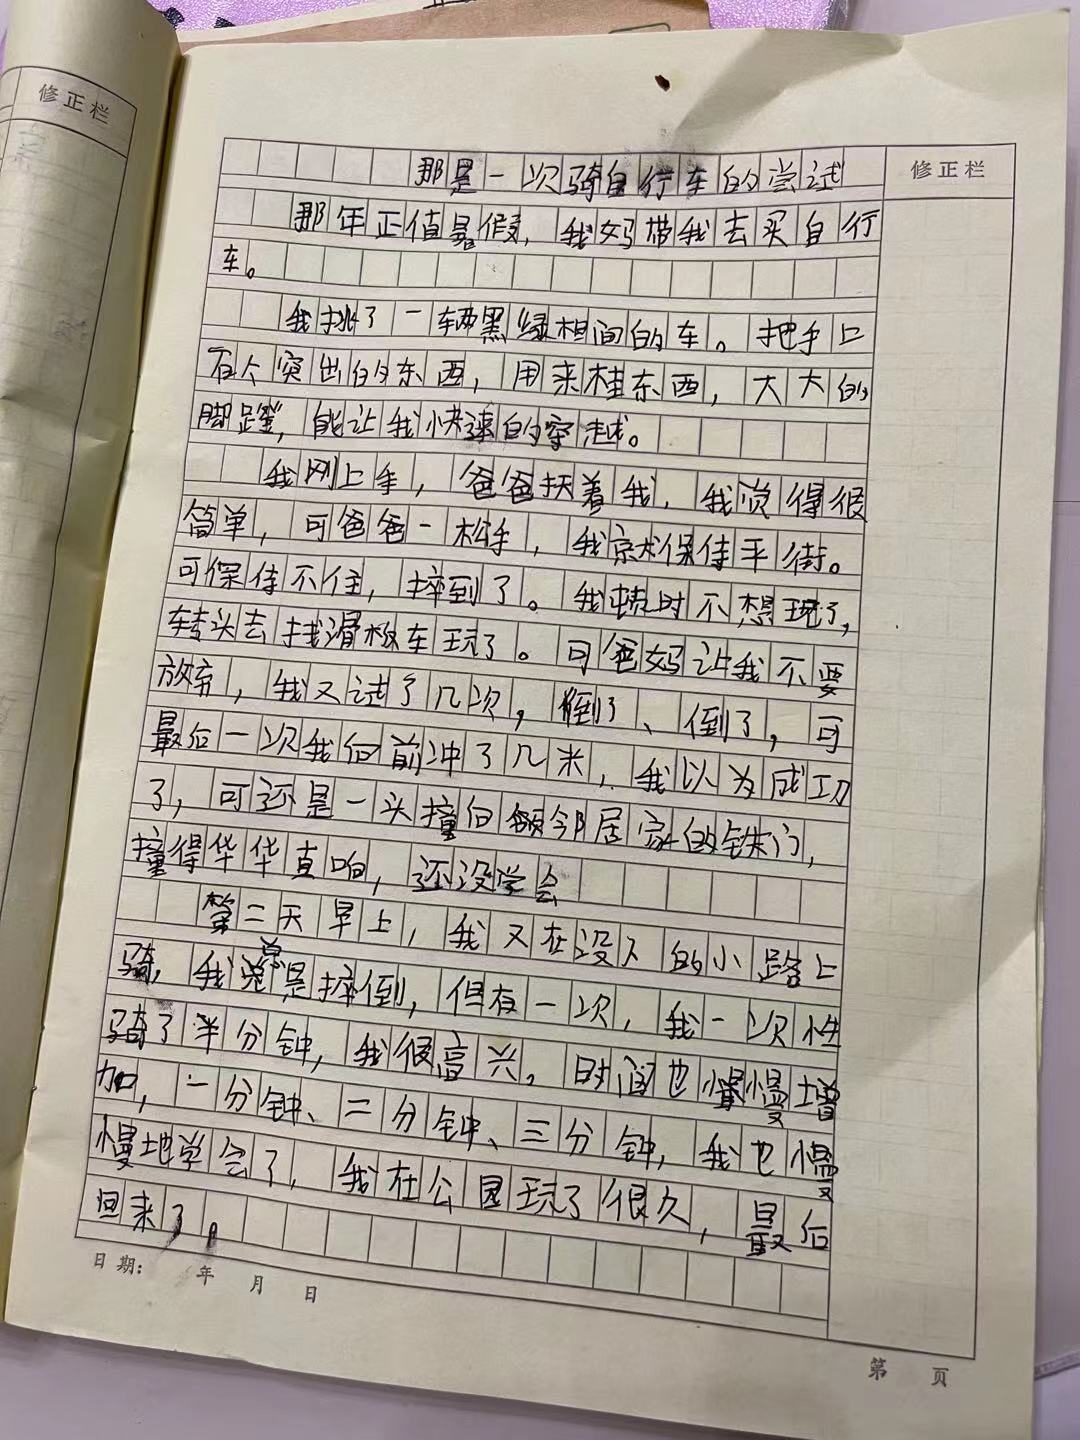 修正栏
修正栏
那是一次骑自行车的尝试
那年正值暑假，我妈带我去买自行
车。
我挑了一辆黑绿相间的车。把手上
有个突出的东西，用来挂东西，大大的
脚蹬，能让我快速的穿越。
我刚上手，爸爸扶着我，我觉得很
简单，可爸爸一松手，我就保持平衡。
可保持不住，摔到了。我顿时不想玩了，
转头去找滑板车玩了。可爸妈让我不要
放弃，我又试了几次，倒了、倒了，可
最后一次我向前冲了几米，我以为成功
了，可还是一头撞向邻居家的铁门，
撞得华华直响，还没学会
第二天早上，我又在没人的小路上
骑，我总是摔倒，但有一次，我一次性
骑了半分钟，我很高兴。时间也慢慢增
加，一分钟、二分钟、三分钟，我也慢
慢地学会了，我在公园玩了很久，最后
回来了。
日期： 年 月 日
第 页